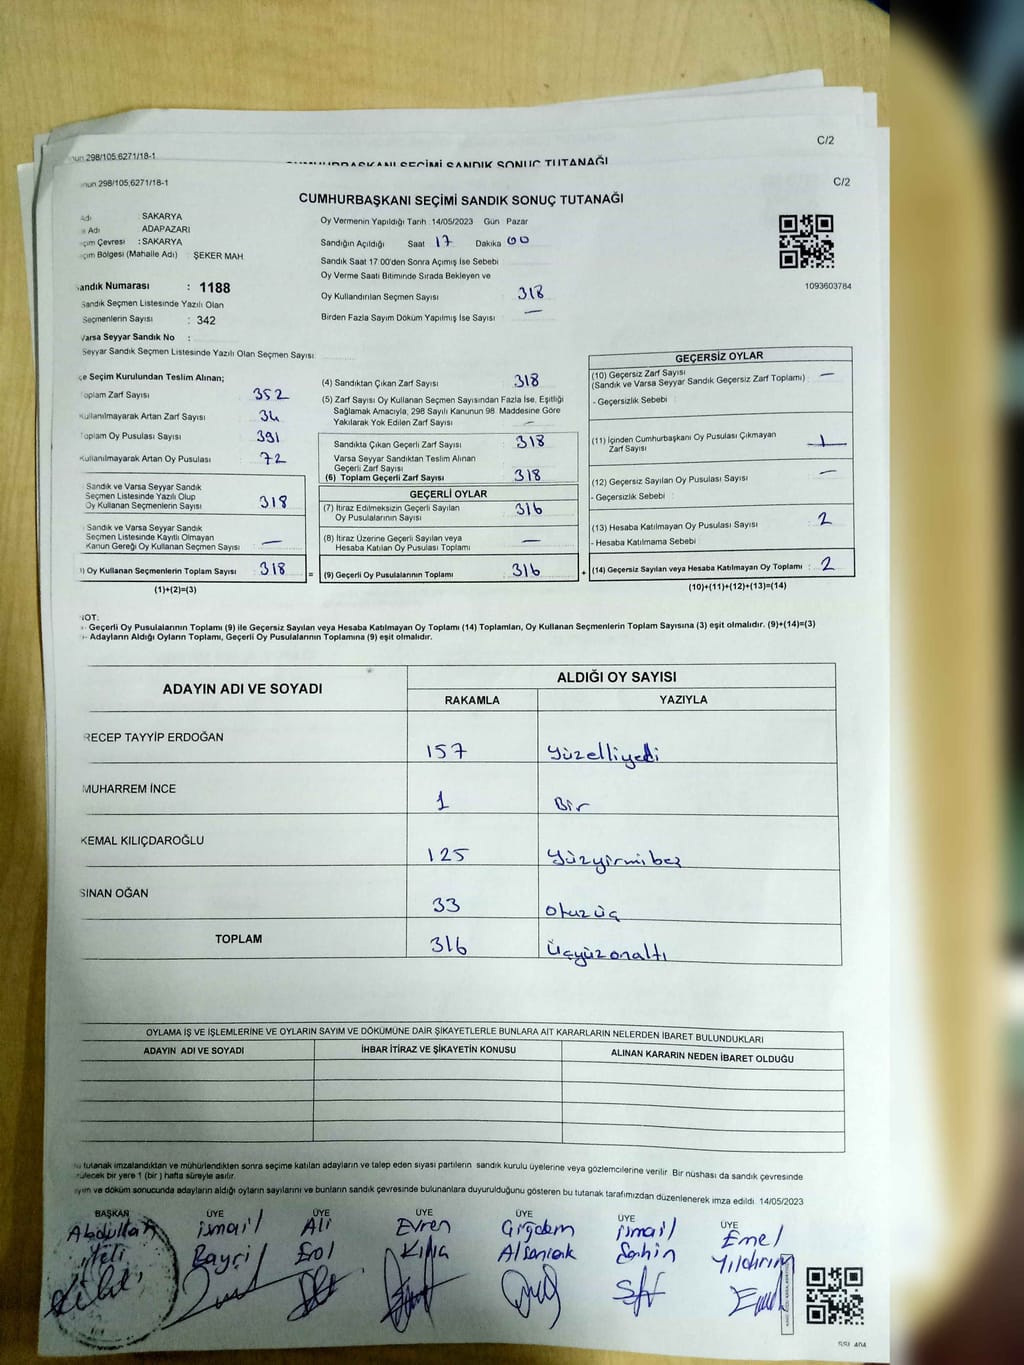 298/105,6271/18-1
C/2
CUMHURBAŞKANI SEÇİMİ SANDIK SONUÇ TUTANAĞI
298/105,6271/18-1
C/2
CUMHURBAŞKANI SEÇİMİ SANDIK SONUÇ TUTANAĞI
Adı : SAKARYA
Adı : ADAPAZARI
Çevresi : SAKARYA
Bölgesi (Mahalle Adı) : ŞEKER MAH
Oy Vermenin Yapıldığı Tarih :14/05/2023 Gün : Pazar
Sandığın Açıldığı Saat 17 Dakika 00
Sandık Saat 17 00'den Sonra Açımış İse Sebebi
Oy Verme Saati Bitiminde Sırada Bekleyen ve
Oy Kullandırılan Seçmen Sayısı 318
Birden Fazla Sayım Döküm Yapılmış İse Sayısı —
1093603784
Sandık Numarası : 1188
Sandık Seçmen Listesinde Yazılı Olan
Seçmenlerin Sayısı : 342
Varsa Seyyar Sandık No :
Seyyar Sandık Seçmen Listesinde Yazılı Olan Seçmen Sayısı:
Seçim Kurulundan Teslim Alınan;
Toplam Zarf Sayısı 352
Kullanılmayarak Artan Zarf Sayısı 34
Toplam Oy Pusulası Sayısı 391
Kullanılmayarak Artan Oy Pusulası 72
Sandık ve Varsa Seyyar Sandık
Seçmen Listesinde Yazılı Olup
Oy Kullanan Seçmenlerin Sayısı 318
Sandık ve Varsa Seyyar Sandık
Seçmen Listesinde Kayıtlı Olmayan
Kanun Gereği Oy Kullanan Seçmen Sayısı —
) Oy Kullanan Seçmenlerin Toplam Sayısı 318 =
(1)+(2)=(3)
(4) Sandıktan Çıkan Zarf Sayısı 318
(5) Zarf Sayısı Oy Kullanan Seçmen Sayısından Fazla İse, Eşitliği
Sağlamak Amacıyla, 298 Sayılı Kanunun 98. Maddesine Göre
Yakılarak Yok Edilen Zarf Sayısı —
Sandıkta Çıkan Geçerli Zarf Sayısı 318
Varsa Seyyar Sandıktan Teslim Alınan
Geçerli Zarf Sayısı
(6) Toplam Geçerli Zarf Sayısı 318
GEÇERLİ OYLAR
(7) İtiraz Edilmeksizin Geçerli Sayılan
Oy Pusulalarının Sayısı 316
(8) İtiraz Üzerine Geçerli Sayılan veya
Hesaba Katılan Oy Pusulası Toplamı —
(9) Geçerli Oy Pusulalarının Toplamı 316 +
GEÇERSİZ OYLAR
(10) Geçersiz Zarf Sayısı
(Sandık ve Varsa Seyyar Sandık Geçersiz Zarf Toplamı) : —
- Geçersizlik Sebebi :
(11) İçinden Cumhurbaşkanı Oy Pusulası Çıkmayan
Zarf Sayısı : 1
(12) Geçersiz Sayılan Oy Pusulası Sayısı : —
- Geçersizlik Sebebi :
(13) Hesaba Katılmayan Oy Pusulası Sayısı : 2
- Hesaba Katılmama Sebebi :
(14) Geçersiz Sayılan veya Hesaba Katılmayan Oy Toplamı : 2
(10)+(11)+(12)+(13)=(14)
NOT:
- Geçerli Oy Pusulalarının Toplamı (9) ile Geçersiz Sayılan veya Hesaba Katılmayan Oy Toplamı (14) Toplamları, Oy Kullanan Seçmenlerin Toplam Sayısına (3) eşit olmalıdır. (9)+(14)=(3)
- Adayların Aldığı Oyların Toplamı, Geçerli Oy Pusulalarının Toplamına (9) eşit olmalıdır.
ADAYIN ADI VE SOYADI ALDIĞI OY SAYISI
RAKAMLA YAZIYLA
RECEP TAYYİP ERDOĞAN 157 Yüzelliyedi
MUHARREM İNCE 1 Bir
KEMAL KILIÇDAROĞLU 125 Yüzyirmibeş
SİNAN OĞAN 33 Otuzüç
TOPLAM 316 Üçyüzonaltı
OYLAMA İŞ VE İŞLEMLERİNE VE OYLARIN SAYIM VE DÖKÜMÜNE DAİR ŞİKAYETLERLE BUNLARA AİT KARARLARIN NELERDEN İBARET BULUNDUKLARI
ADAYIN ADI VE SOYADI İHBAR İTİRAZ VE ŞİKAYETİN KONUSU ALINAN KARARIN NEDEN İBARET OLDUĞU
tutanak imzalandıktan ve mühürlendikten sonra seçime katılan adayların ve talep eden siyasi partilerin sandık kurulu üyelerine veya gözlemcilerine verilir. Bir nüshası da sandık çevresinde
bir yere 1 (bir) hafta süreyle asılır.
ve döküm sonucunda adayların aldığı oyların sayılarını ve bunların sandık çevresinde bulunanlara duyurulduğunu gösteren bu tutanak tarafımızdan düzenlenerek imza edildi. 14/05/2023
BAŞKAN ÜYE ÜYE ÜYE ÜYE ÜYE ÜYE
Abdullah İsmail Ali Evren Çiğdem İsmail Emel
Bayri Erol Kılıç Alsancak Şahin Yıldırım